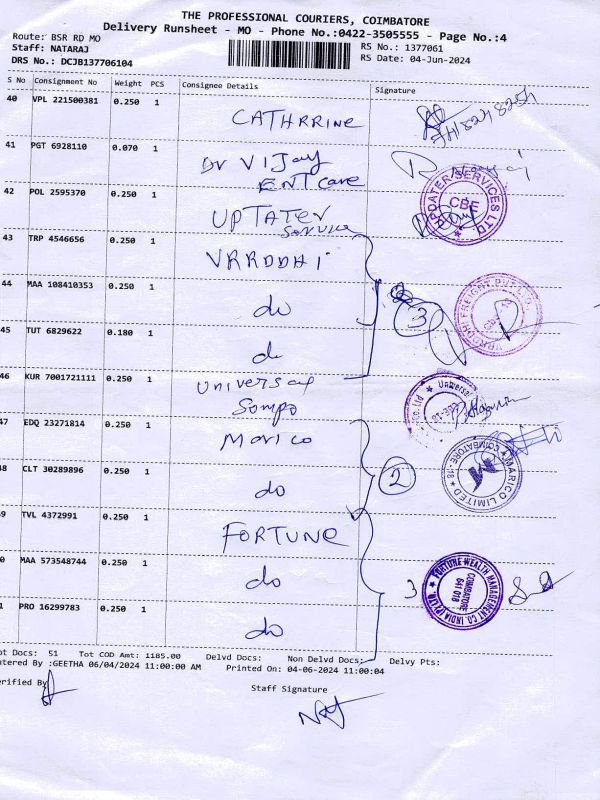 THE PROFESSIONAL COURIERS, COIMBATORE
Delivery Runsheet - MO - Phone No.:0422-3505555 - Page No.:4
Route: BSR RD MO
Staff: NATARAJ
RS No.: 1377061
DRS No.: DCJB137706104
RS Date: 04-Jun-2024
S No Consignment No Weight PCS Consignee Details Signature
40 VPL 221500381 0.250 1
CATHRRINE
41 PGT 6928110 0.070 1
Dr VIJay
ENT care
42 POL 2595370 0.250 1
UPTATER
Service
UPDATER SERVICES LTD
CBE
43 TRP 4546656 0.250 1
VRRDDHI
44 MAA 108410353 0.250 1
do
3
45 TUT 6829622 0.180 1
do
46 KUR 7001721111 0.250 1
Universal
Sompo
Universal
47 EDQ 23271814 0.250 1
Marico
48 CLT 30289896 0.250 1
do
2
MARICO LIMITED
COIMBATORE - 18
49 TVL 4372991 0.250 1
FORTUNE
0 MAA 573548744 0.250 1
do
3
FORTUNE WEALTH MANAGEMENT CO. INDIA (P) LTD
COIMBATORE
641 018
1 PRO 16299783 0.250 1
do
ot Docs: 51 Tot COD Amt: 1185.00 Delvd Docs: Non Delvd Docs: Delvy Pts:
ntered By :GEETHA 06/04/2024 11:00:00 AM Printed On: 04-06-2024 11:00:04
erified By
Staff Signature